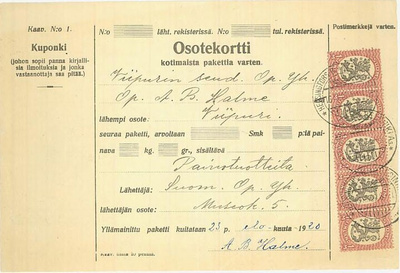 Kaav. N:o 1.
Kuponki
(johon sopii panna kirjallisia ilmoituksia ja jonka vastaanottaja saa pitää.)
N:o läht. rekisterissä. N:o tul. rekisterissä.
Postimerkkejä varten.
Osotekortti
kotimaista pakettia varten.
Viipurin seud. Op. Yh.
Op. A. B. Halme
lähempi osote: Viipuri
seuraa paketti, arvoltaan Smk p:iä pai-
nava kg. gr., sisältävä
Painotuotteita
Lähettäjä: Suom. Op. Yh.
lähettäjän osote: Museok. 5.
Yllämainittu paketti kuitataan 23 p. elo-kuuta 1920
A B Halme.